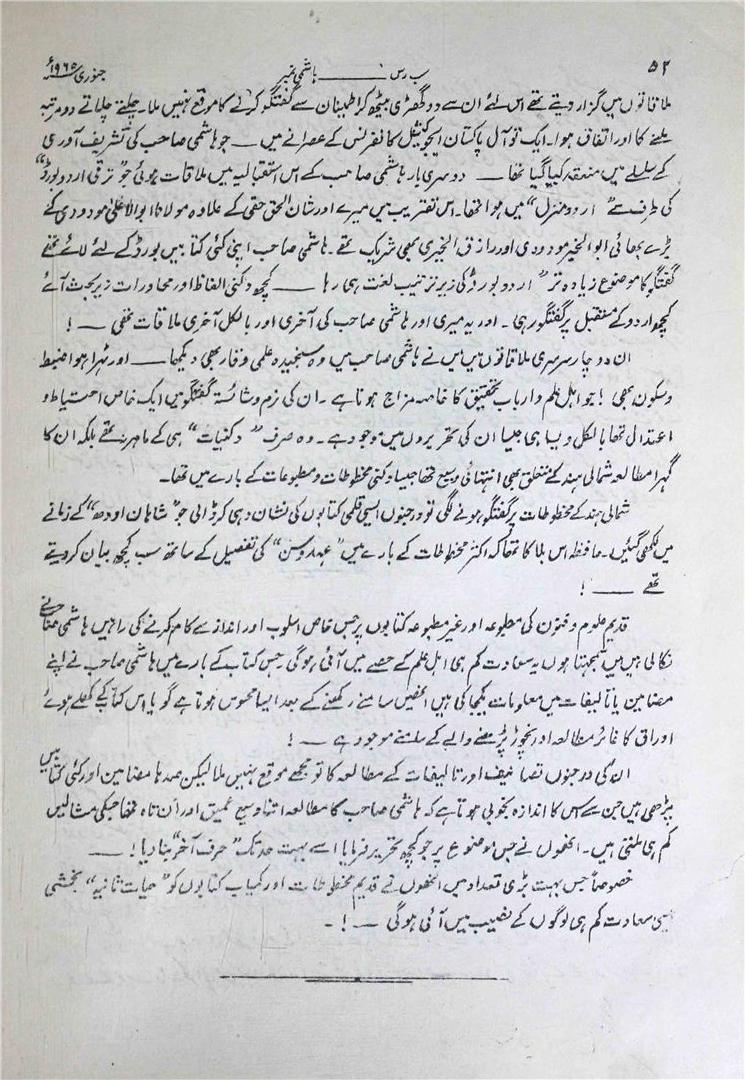 ۵۲
سب رس ــــــــ ہاشمی نمبر
جنوری ۱۹۶۵ء
ملاقاتوں میں گزار دیتے تھے اس لئے ان سے دو گھڑی بیٹھ کر اطمینان سے گفتگو کرنے کا موقع نہیں ملا۔ چلتے چلاتے دو مرتبہ
ملنے کا اور اتفاق ہوا۔ ایک تو آل پاکستان ایجوکیشنل کانفرنس کے عصرانے میں ـــ جو ہاشمی صاحب کی تشریف آوری
کے سلسلے میں منعقد کیا گیا تھا ـــ دوسری بار ہاشمی صاحب کے اس استقبالیہ میں ملاقات ہوئی جو "ترقی اردو بورڈ"
کی طرف سے "اردو منزل" میں ہوا تھا۔ اس تقریب میں میرے اور شان الحق حقی کے علاوہ مولانا ابوالاعلیٰ مودودی کے
بڑے بھائی ابوالخیر مودودی اور رازق الخیری بھی شریک تھے۔ ہاشمی صاحب اپنی کئی کتابیں بورڈ کے لئے لائے تھے
گفتگو کا موضوع زیادہ تر "اردو بورڈ کی زیر ترتیب لغت ہی رہا ـــ کچھ دکنی الفاظ اور محاورات زیر بحث آئے
کچھ اردو کے مستقبل پر گفتگو رہی۔ اور یہ میری اور ہاشمی صاحب کی آخری اور بالکل آخری ملاقات تھی ـــ !
ان دو چار سرسری ملاقاتوں میں میں نے ہاشمی صاحب میں وہ سنجیدہ علمی وقار بھی دیکھا ـــ اور ٹھہرا ہوا ضبط
و سکون بھی ! جو اہل علم و ارباب تحقیق کا خاصہ مزاج ہوتا ہے۔ ان کی نرم و شائستہ گفتگو میں ایک خاص احتیاط و
اعتدال تھا بالکل ویسا ہی جیسا ان کی تحریروں میں موجود ہے۔ وہ صرف "دکنیات" ہی کے ماہر نہ تھے بلکہ ان کا
گہرا مطالعہ شمالی ہند کے متعلق بھی انتہائی وسیع تھا جیسا دکنی مخطوطات و مطبوعات کے بارے میں تھا۔
شمالی ہند کے مخطوطات پر گفتگو ہونے لگی تو درجنوں ایسی قلمی کتابوں کی نشان دہی کر ڈالی جو "شاہان اودھ" کے زمانے
میں لکھی گئیں۔ حافظہ اس بلا کا تھا کہ اکثر مخطوطات کے بارے میں "عہد و سن" کی تفصیل کے ساتھ سب کچھ بیان کر دیتے
تھے ـــ !
قدیم علوم و فنون کی مطبوعہ اور غیر مطبوعہ کتابوں پر جس خاص اسلوب اور انداز سے کام کرنے کی راہیں ہاشمی صاحب نے
نکالی ہیں میں سمجھتا ہوں یہ سعادت کم ہی اہل علم کے حصے میں آئی ہوگی۔ جس کتاب کے بارے میں ہاشمی صاحب نے اپنے
مضامین یا تالیفات میں معلومات یکجا کی ہیں انھیں سامنے رکھنے کے بعد ایسا محسوس ہوتا ہے گویا اس کتاب کے کھلے ہوئے
اوراق کا غائر مطالعہ اور نچوڑ پڑھنے والے کے سامنے موجود ہے ـــ !
ان کی درجنوں تصانیف اور تالیفات کے مطالعہ کا تو مجھے موقع نہیں ملا لیکن صدہا مضامین اور کئی کتابیں
پڑھی ہیں جن سے اس کا اندازہ بخوبی ہوتا ہے کہ ہاشمی صاحب کا مطالعہ اتنا وسیع عمیق اور ان تاہ تھا جسکی مثالیں
کم ہی ملتی ہیں۔ انھوں نے جس موضوع پر جو کچھ تحریر فرمایا اسے بہت حد تک "حرف آخر" بنا دیا ! ـــ
خصوصاً جس بہت بڑی تعداد میں انھوں نے قدیم مخطوطات اور کمیاب کتابوں کو "حیات ثانیہ" بخشی
ایسی سعادت کم ہی لوگوں کے نصیب میں آئی ہوگی ـــ ! ـ